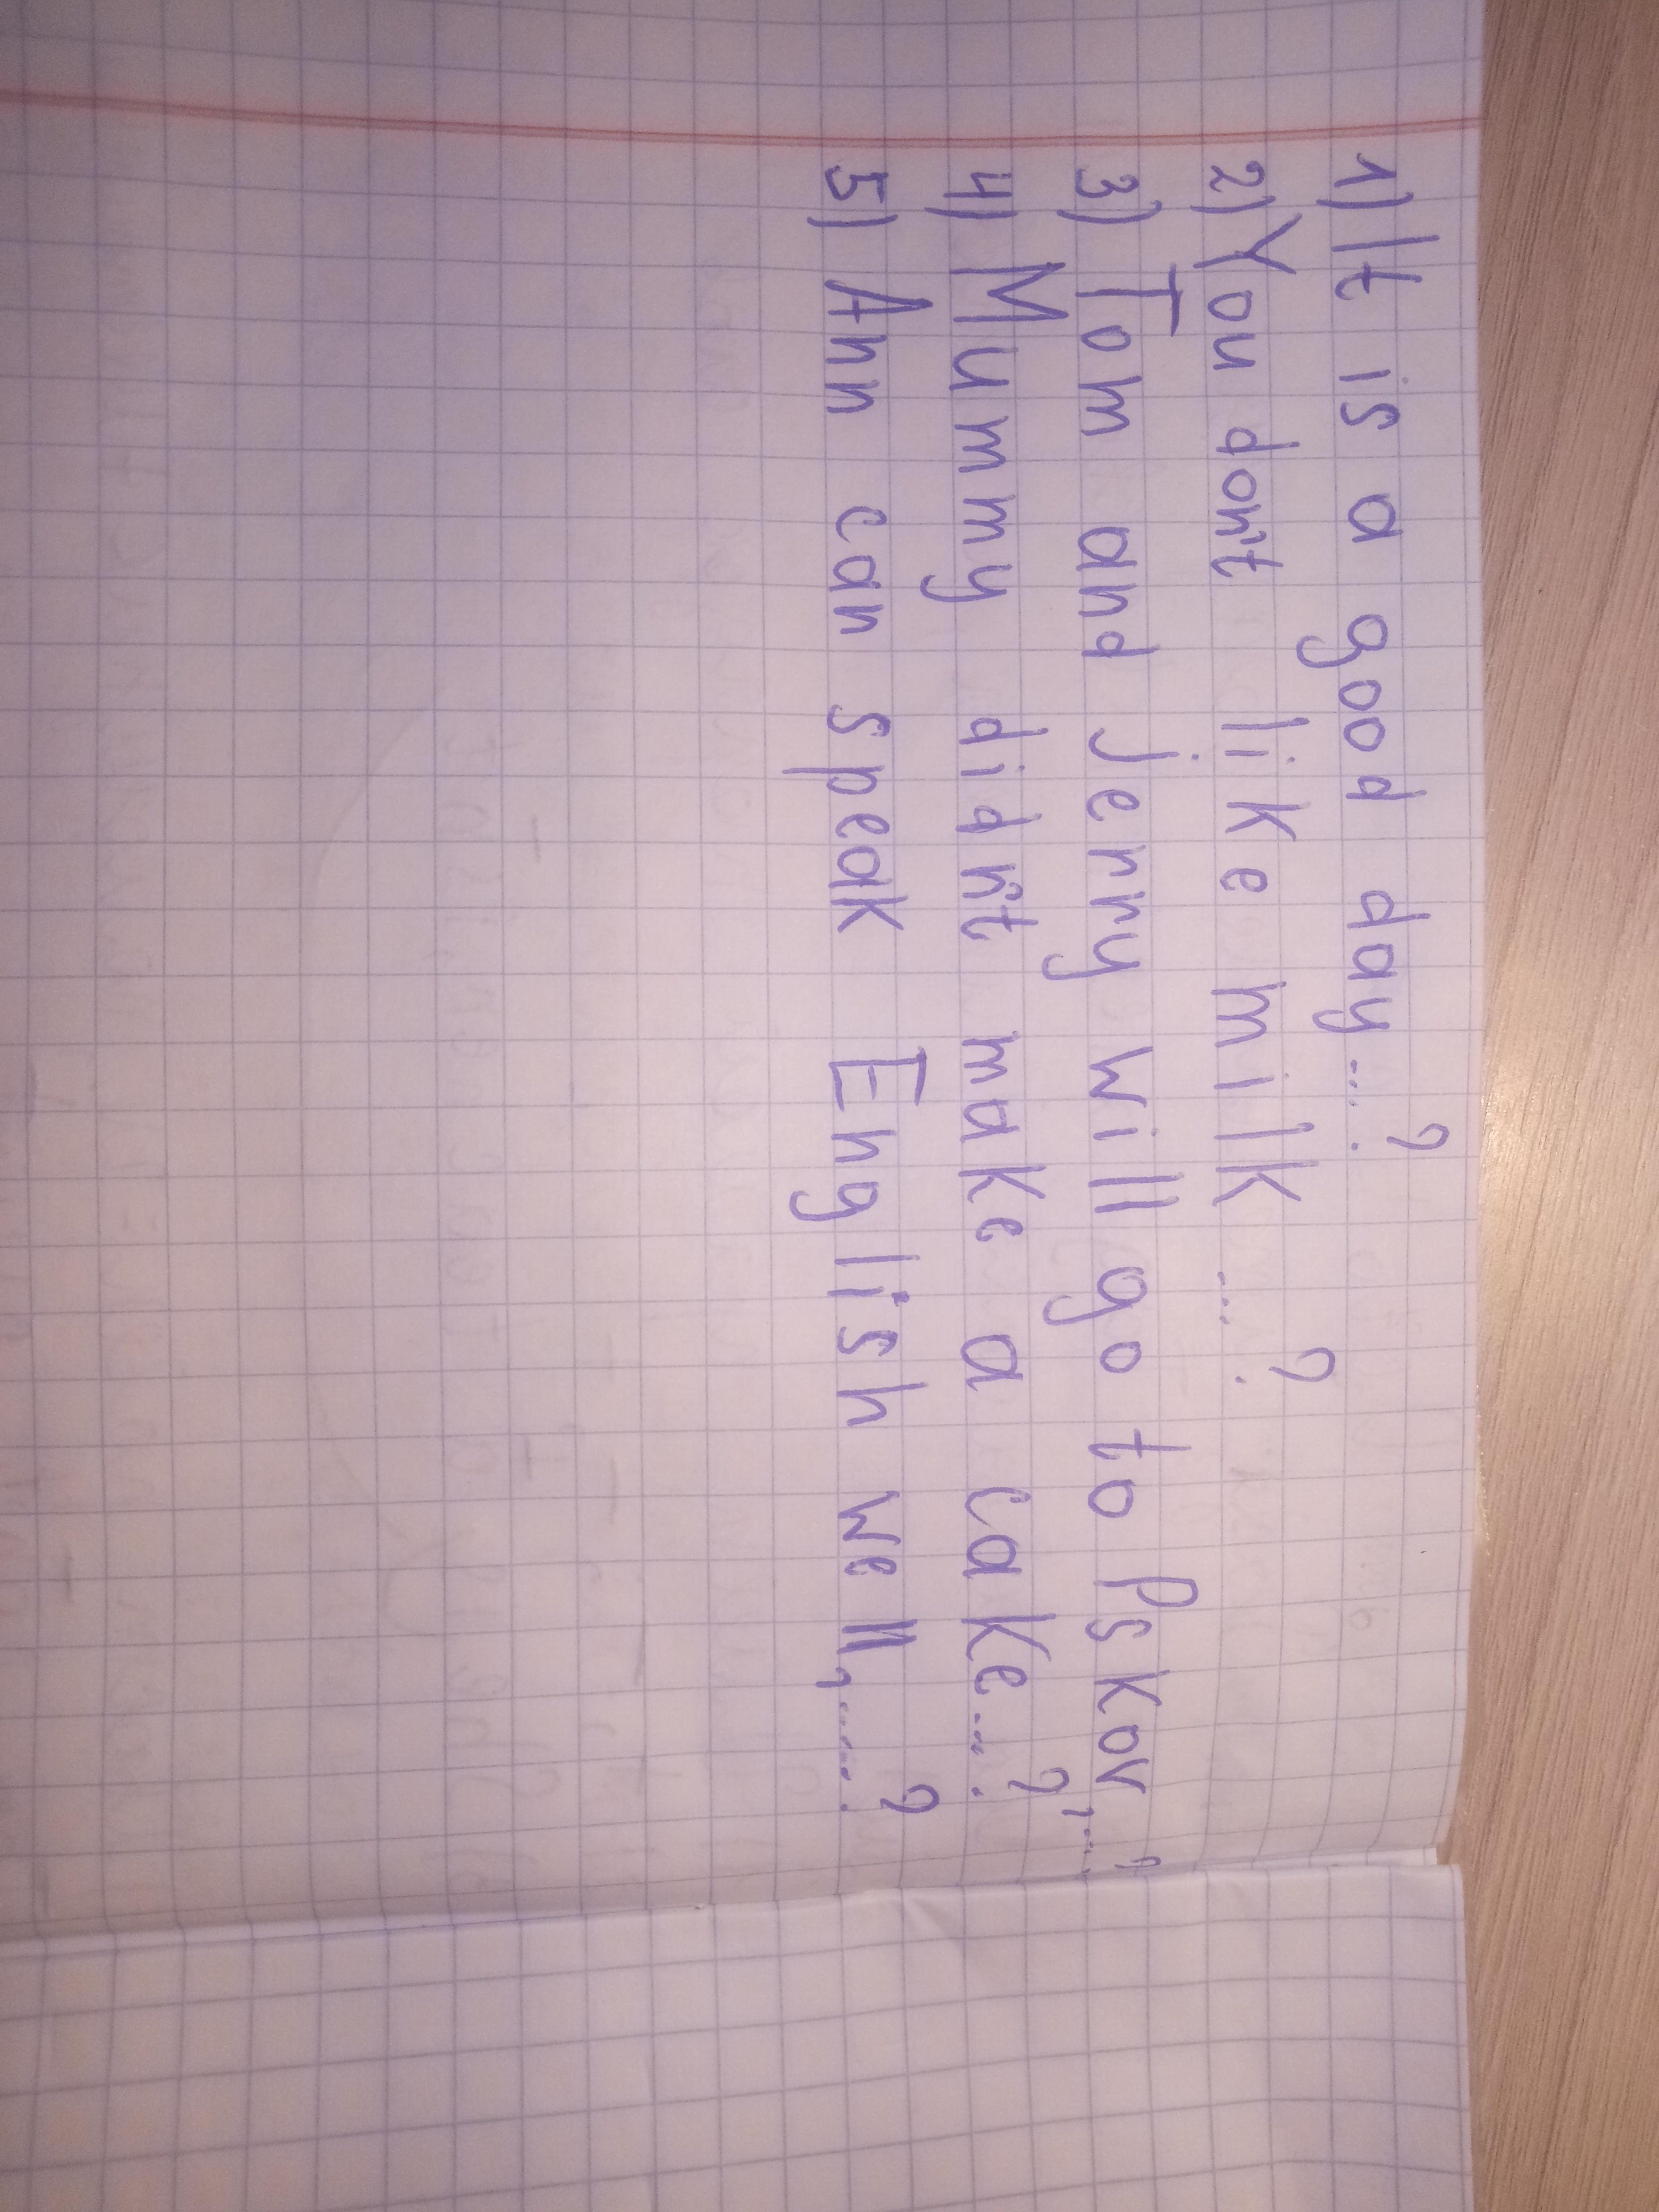 1) It is a good day...?
2) You don't like milk ...?
3) Tom and Jerry will go to Pskov,...?
4) Mummy didn't make a cake...?
5) Ann can speak English well,....?